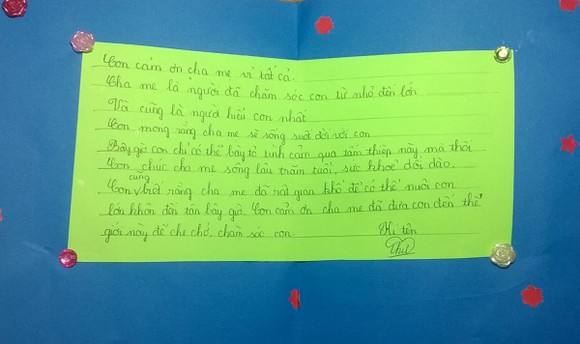 Con cảm ơn cha mẹ vì tất cả.
Cha mẹ là người đã chăm sóc con từ nhỏ đến lớn
Và cũng là người hiểu con nhất
Con mong rằng cha mẹ sẽ sống suốt đời với con
Bây giờ con chỉ có thể bày tỏ tình cảm qua tấm thiệp này mà thôi
Con chúc cha mẹ sống lâu trăm tuổi, sức khoẻ dồi dào.
Con cũng biết rằng cha mẹ đã rất gian khổ để có thể nuôi con
lớn khôn đến tận bây giờ. Con cảm ơn cha mẹ đã đưa con đến thế
giới này để che chở, chăm sóc con.
Kí tên
Thư